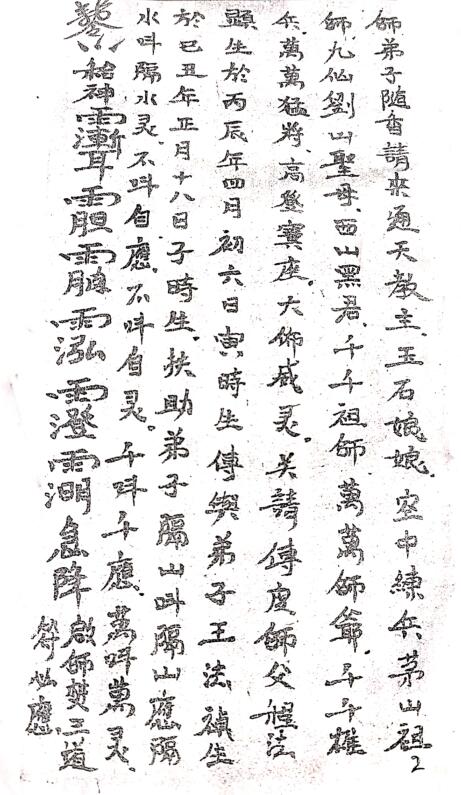 師弟子隨香請來通天教主、玉石娘娘。空中練兵茅山祖
師、九仙劉山聖母、西山黑君、千千祖師萬萬師爺、千千雄
兵、萬萬猛將、高登寶座、大師感灵。关請傳度師父程法
顯生於丙辰年四月初六日寅時生傳與弟子王法禎生
於己丑年正月十八日子時生、扶助弟子隔山叫隔山應、隔
水叫隔水灵、不叫自應、不叫自灵。千叫千應、萬叫萬灵、
急降
啟師焚三道
符必應
2